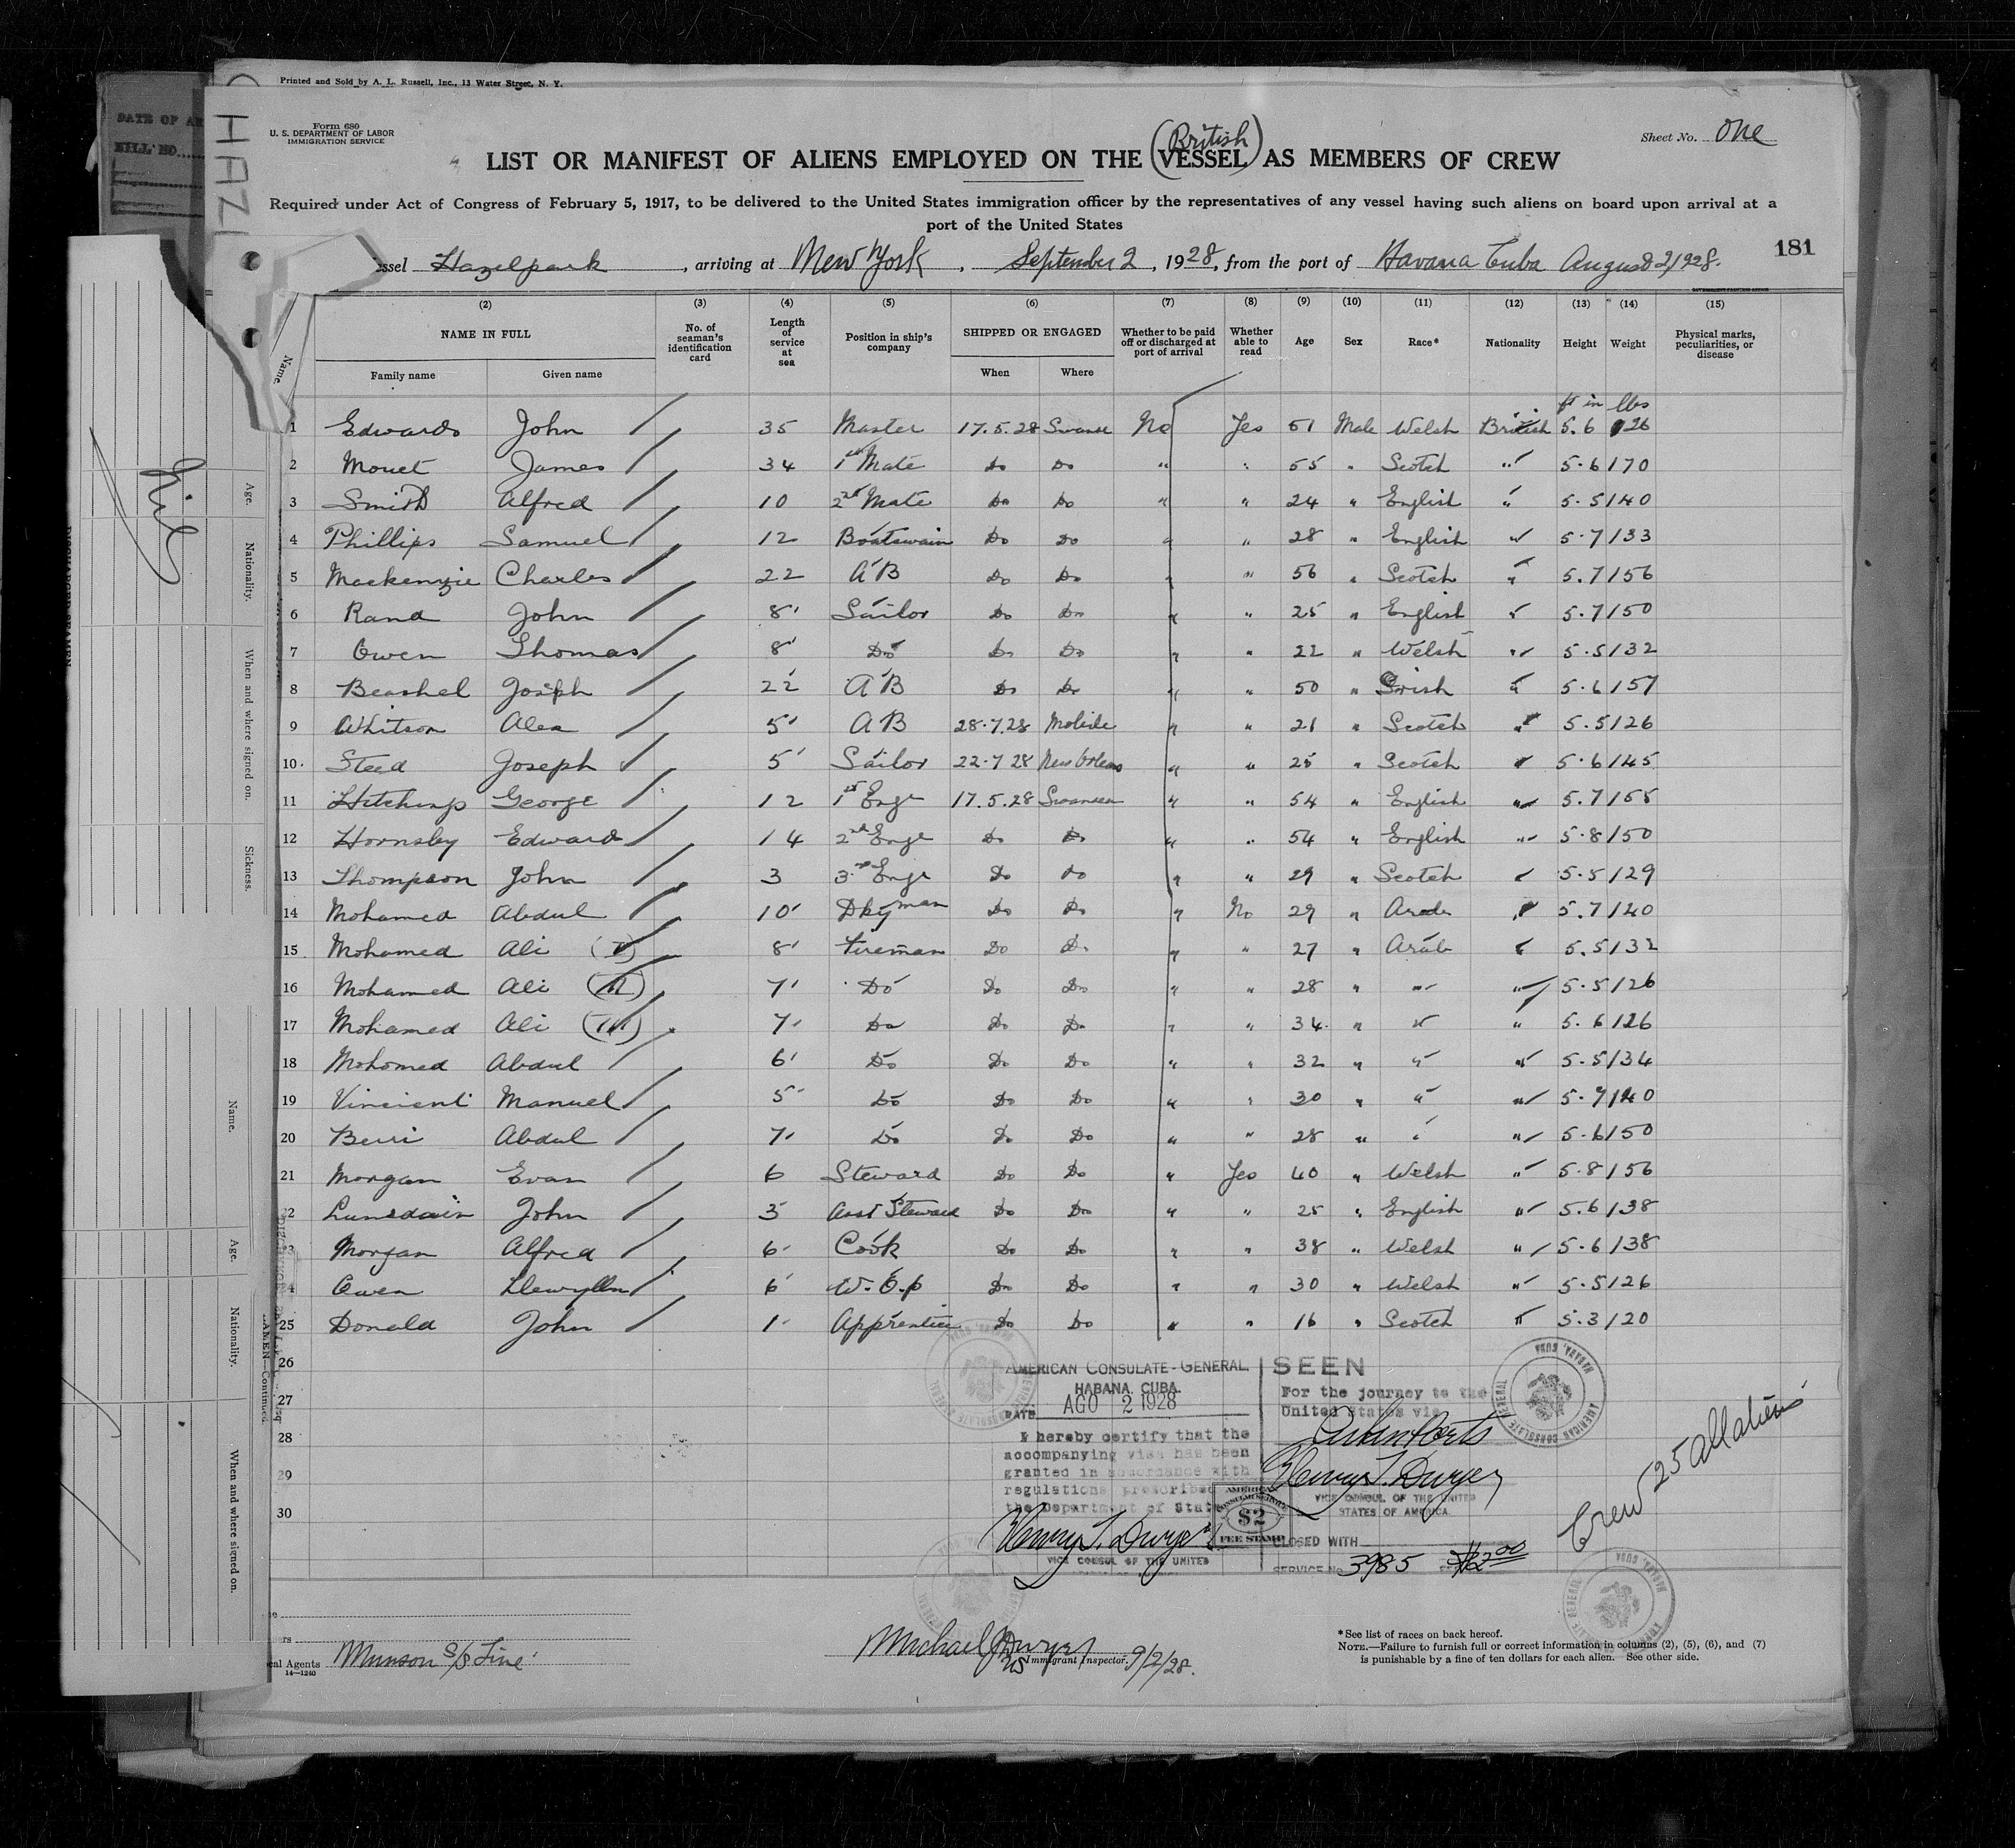 Printed and Sold by A. L. Russell, Inc., 13 Water Street, N. Y.
DATE OF AR
BILL NO.
HAZL
Form 680
U. S. DEPARTMENT OF LABOR
IMMIGRATION SERVICE
Sheet No. One
(British)
LIST OR MANIFEST OF ALIENS EMPLOYED ON THE VESSEL AS MEMBERS OF CREW
Required under Act of Congress of February 5, 1917, to be delivered to the United States immigration officer by the representatives of any vessel having such aliens on board upon arrival at a
port of the United States
181
ssel Hazelpark, arriving at New York, September 2, 1928, from the port of Havana Cuba August 2/1928.
(2) (3) (4) (5) (6) (7) (8) (9) (10) (11) (12) (13) (14) (15)
Name
NAME IN FULL
Family name
Given name
No. of seaman's identification card
Length of service at sea
Position in ship's company
SHIPPED OR ENGAGED
When
Where
Whether to be paid off or discharged at port of arrival
Whether able to read
Age
Sex
Race*
Nationality
Height
Weight
Physical marks, peculiarities, or disease
ft in lbs
1 Edwards John 35 Master 17.5.28 Swansea No Yes 51 Male Welsh British 5.6 126
2 Mouet James 34 1st Mate Do Do " " 55 " Scotch " 5.6 170
3 Smith Alfred 10 2nd Mate Do Do " " 24 " English " 5.5 140
4 Phillips Samuel 12 Boatswain Do Do " " 28 " English " 5.7 133
5 Mackenzie Charles 22 AB Do Do " " 56 " Scotch " 5.7 156
6 Rand John 8 Sailor Do Do " " 25 " English " 5.7 150
7 Owen Thomas 8 Do Do Do " " 22 " Welsh " 5.5 132
8 Beashel Joseph 22 AB Do Do " " 50 " Irish " 5.6 157
9 Whitson Alex 5 AB 28.7.28 Mobile " " 21 " Scotch " 5.5 126
10 Steed Joseph 5 Sailor 22.7.28 New Orleans " " 25 " Scotch " 5.6 145
11 Hitchings George 12 1st Engr 17.5.28 Swansea " " 54 " English " 5.7 155
12 Hornsby Edward 14 2nd Engr Do Do " " 54 " English " 5.8 150
13 Thompson John 3 3rd Engr Do do " " 29 " Scotch " 5.5 129
14 Mohamed Abdul 10 Dkyman Do Do " No 29 " Arab " 5.7 140
15 Mohamed Ali (I) 8 Fireman Do Do " " 27 " Arab " 5.5 132
16 Mohamed Ali (II) 7 Do Do Do " " 28 " " " 5.5 126
17 Mohamed Ali (III) 7 Do Do Do " " 34 " " " 5.6 126
18 Mohomed Abdul 6 Do Do Do " " 32 " " " 5.5 134
19 Vincient Manuel 5 Do Do Do " " 30 " " " 5.7 140
20 Berri Abdul 7 Do Do Do " " 28 " " " 5.6 150
21 Morgan Evan 6 Steward Do Do " Yes 40 " Welsh " 5.8 156
22 Lunsdain John 3 Asst Steward Do Do " " 25 " English " 5.6 138
23 Morgan Alfred 6 Cook Do Do " " 38 " Welsh " 5.6 138
24 Owen Llewylln 6 W.Op Do Do " " 30 " Welsh " 5.5 126
25 Donald John 1 Apprentice Do Do " " 16 " Scotch " 5.3 120
26
27
28
29
30
AMERICAN CONSULATE-GENERAL
HABANA, CUBA
DATE AGO 2 1928
I hereby certify that the
accompanying visa has been
granted in accordance with
regulations prescribed
the Department of State
Henry T. Dwyer
VICE CONSUL OF THE UNITED
AMERICAN CONSULAR SERVICE
$2
FEE STAMP
SEEN
For the journey to the
United States via
Henry T. Dwyer
VICE CONSUL OF THE UNITED
STATES OF AMERICA
CLOSED WITH
SERVICE No. 3985 $2.00
AMERICAN CONSULATE GENERAL HABANA, CUBA
Crew 25 all aliens
al Agents Munson S/S Line
14—1240
Michael J Dwyer
US Immigrant Inspector. 9/2/28.
*See list of races on back hereof.
NOTE.—Failure to furnish full or correct information in columns (2), (5), (6), and (7)
is punishable by a fine of ten dollars for each alien. See other side.
Nil
Age.
Nationality.
When and where signed on.
Sickness.
Name.
Age.
Nationality.
When and where signed on.
DISCHARGED SEAMEN
AMEN—Continued.